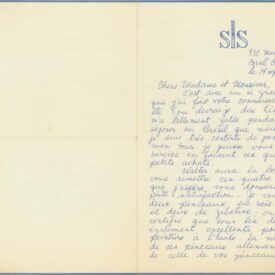 SLS
Coral G
le 14 sep
Chere Madame et Monsieur,
C'est avec un si gran
que j'ai fait votre connaissan
m'a tellement gatée penda
séjour au Bresil que mai
je suis très contente de pou
mon tour je puisse vou
service en faisant ces qu
petits achats.
Walter aura la bon
vous remettre ces quatre
que j'espère, vous donner
satisfaction. Je vous
deux pinceaux en soie
et deux de zibeline, on
certifie que tous les de
également excellents pou
peinture à l'huile. La no
de ces pinceaux alleman
de celle de vos pinceau